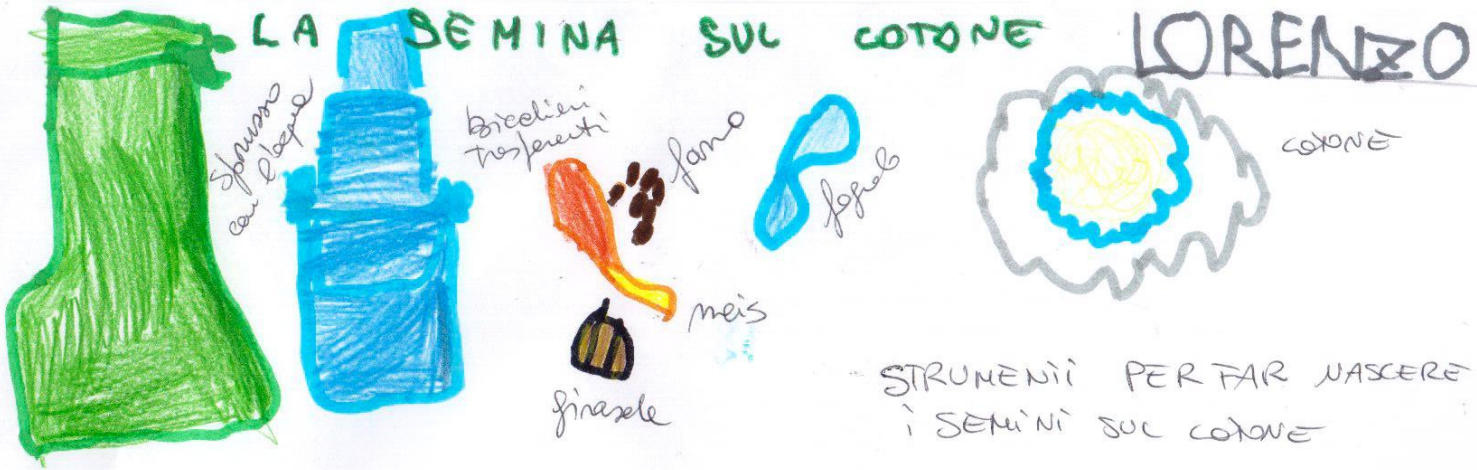 LA SEMINA SUL COTONE
LORENZO
spruzzo
con l'acqua
bicchieri
trasparenti
farro
fagiolo
COTONE
mais
girasole
STRUMENTI PER FAR NASCERE
i SEMINI SUL COTONE